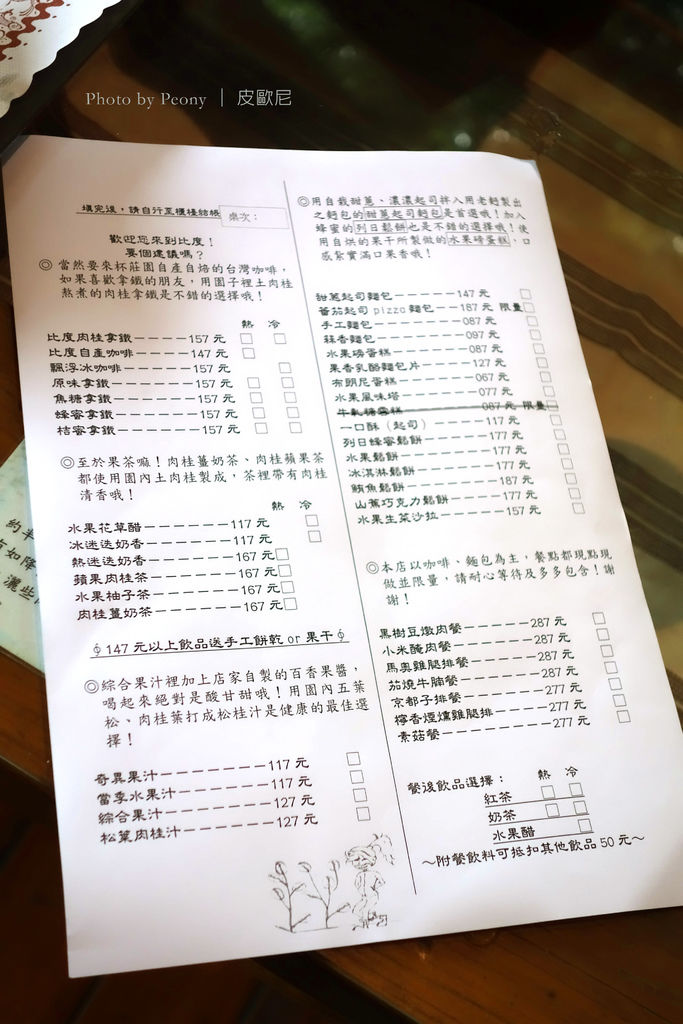 Photo by Peony | 皮歐尼
填完後，請自行至櫃檯結帳
桌次：
歡迎您來到比度！
要個建議嗎？
◎當然要來杯莊園自產自焙的台灣咖啡，
如果喜歡拿鐵的朋友，用園子裡土肉桂
熬煮的肉桂拿鐵是不錯的選擇哦！
熱 冷
比度肉桂拿鐵－－－－157 元 □ □
比度自產咖啡－－－－147 元 □
飄浮冰咖啡－－－－－157 元 □
原味拿鐵－－－－－－157 元 □ □
焦糖拿鐵－－－－－－157 元 □ □
蜂蜜拿鐵－－－－－－157 元 □ □
桔蜜拿鐵－－－－－－157 元 □ □
◎至於果茶嘛！肉桂薑奶茶、肉桂蘋果茶
都使用園內土肉桂製成，茶裡帶有肉桂
清香哦！
熱 冷
水果花草醋－－－－－－117 元 □
冰迷迭奶香－－－－－－117 元 □
熱迷迭奶香－－－－－－167 元 □
蘋果肉桂茶－－－－－－167 元 □
水果柚子茶－－－－－－167 元 □
肉桂薑奶茶－－－－－－167 元 □
147 元以上飲品送手工餅乾 or 果干
◎綜合果汁裡加上店家自製的百香果醬，
喝起來絕對是酸甘甜哦！用園內五葉
松、肉桂葉打成松桂汁是健康的最佳選
擇！
奇異果汁－－－－－－－117 元 □
當季水果汁－－－－－－117 元 □
綜合果汁－－－－－－－127 元 □
松葉肉桂汁－－－－－－127 元 □
◎用自栽甜蔥、濃濃起司拌入用老麵製出
之麵包的甜蔥起司麵包是首選哦！加入
蜂蜜的列日鬆餅也是不錯的選擇哦！使
用自烘的果干所製做的水果磅蛋糕，口
感紮實滿口果香哦！
甜蔥起司麵包－－－－－147 元 □
蕃茄起司 pizza 麵包－－187 元 限量□
手工麵包－－－－－－－087 元 □
蒜香麵包－－－－－－－097 元 □
水果磅蛋糕－－－－－－087 元 □
果香乳酪麵包片－－－－127 元 □
布朗尼蛋糕－－－－－－067 元 □
水果風味塔－－－－－－077 元 □
牛軋糖蛋糕－－－－－－087 元 限量□
一口酥（起司）－－－－117 元 □
列日蜂蜜鬆餅－－－－－177 元 □
水果鬆餅－－－－－－－177 元 □
冰淇淋鬆餅－－－－－－177 元 □
鮪魚鬆餅－－－－－－－187 元 □
山蕉巧克力鬆餅－－－－177 元 □
水果生菜沙拉－－－－－157 元 □
◎本店以咖啡、麵包為主，餐點都現點現
做並限量，請耐心等待及多多包含！謝
謝！
黑樹豆燉肉餐－－－－－287 元 □
小米醃肉餐－－－－－－287 元 □
馬奧雞腿排餐－－－－－287 元 □
茄燒牛腩餐－－－－－－287 元 □
京都子排餐－－－－－－277 元 □
檸香煙燻雞腿排－－－－277 元 □
素菇餐－－－－－－－－277 元 □
餐後飲品選擇： 熱 冷
紅茶 □ □
奶茶 □ □
水果醋 □
～附餐飲料可抵扣其他飲品 50 元～